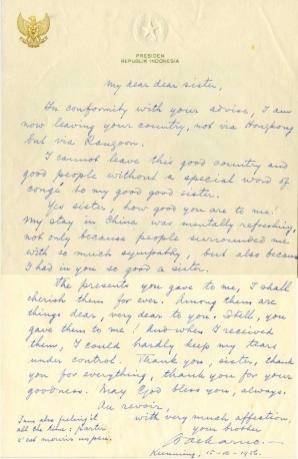 PRESIDEN
REPUBLIK INDONESIA
My dear dear sister,
In conformity with your advise, I am
now leaving your country, not via Hongkong
but via Rangoon.
I cannot leave this good country and
good people without a special word of
congé to my good good sister.
Yes sister, how good you are to me!
My stay in China was mentally refreshing,
not only because people surrounded me
with so much sympathy, but also because
I had in you so good a sister.
The presents you gave to me, I shall
cherish them for ever. Among them are
things dear, very dear to you. Still, you
gave them to me! And when I received
them, I could hardly keep my tears
under control. Thank you, sister, thank
you for everything, thank you for your
goodness. May God bless you, always.
Au revoir,
with very much affection,
your brother
Soekarno.
Kunming, 15-10-1956.
I am also feeling it
all the time: partir
c'est mourir un peu.